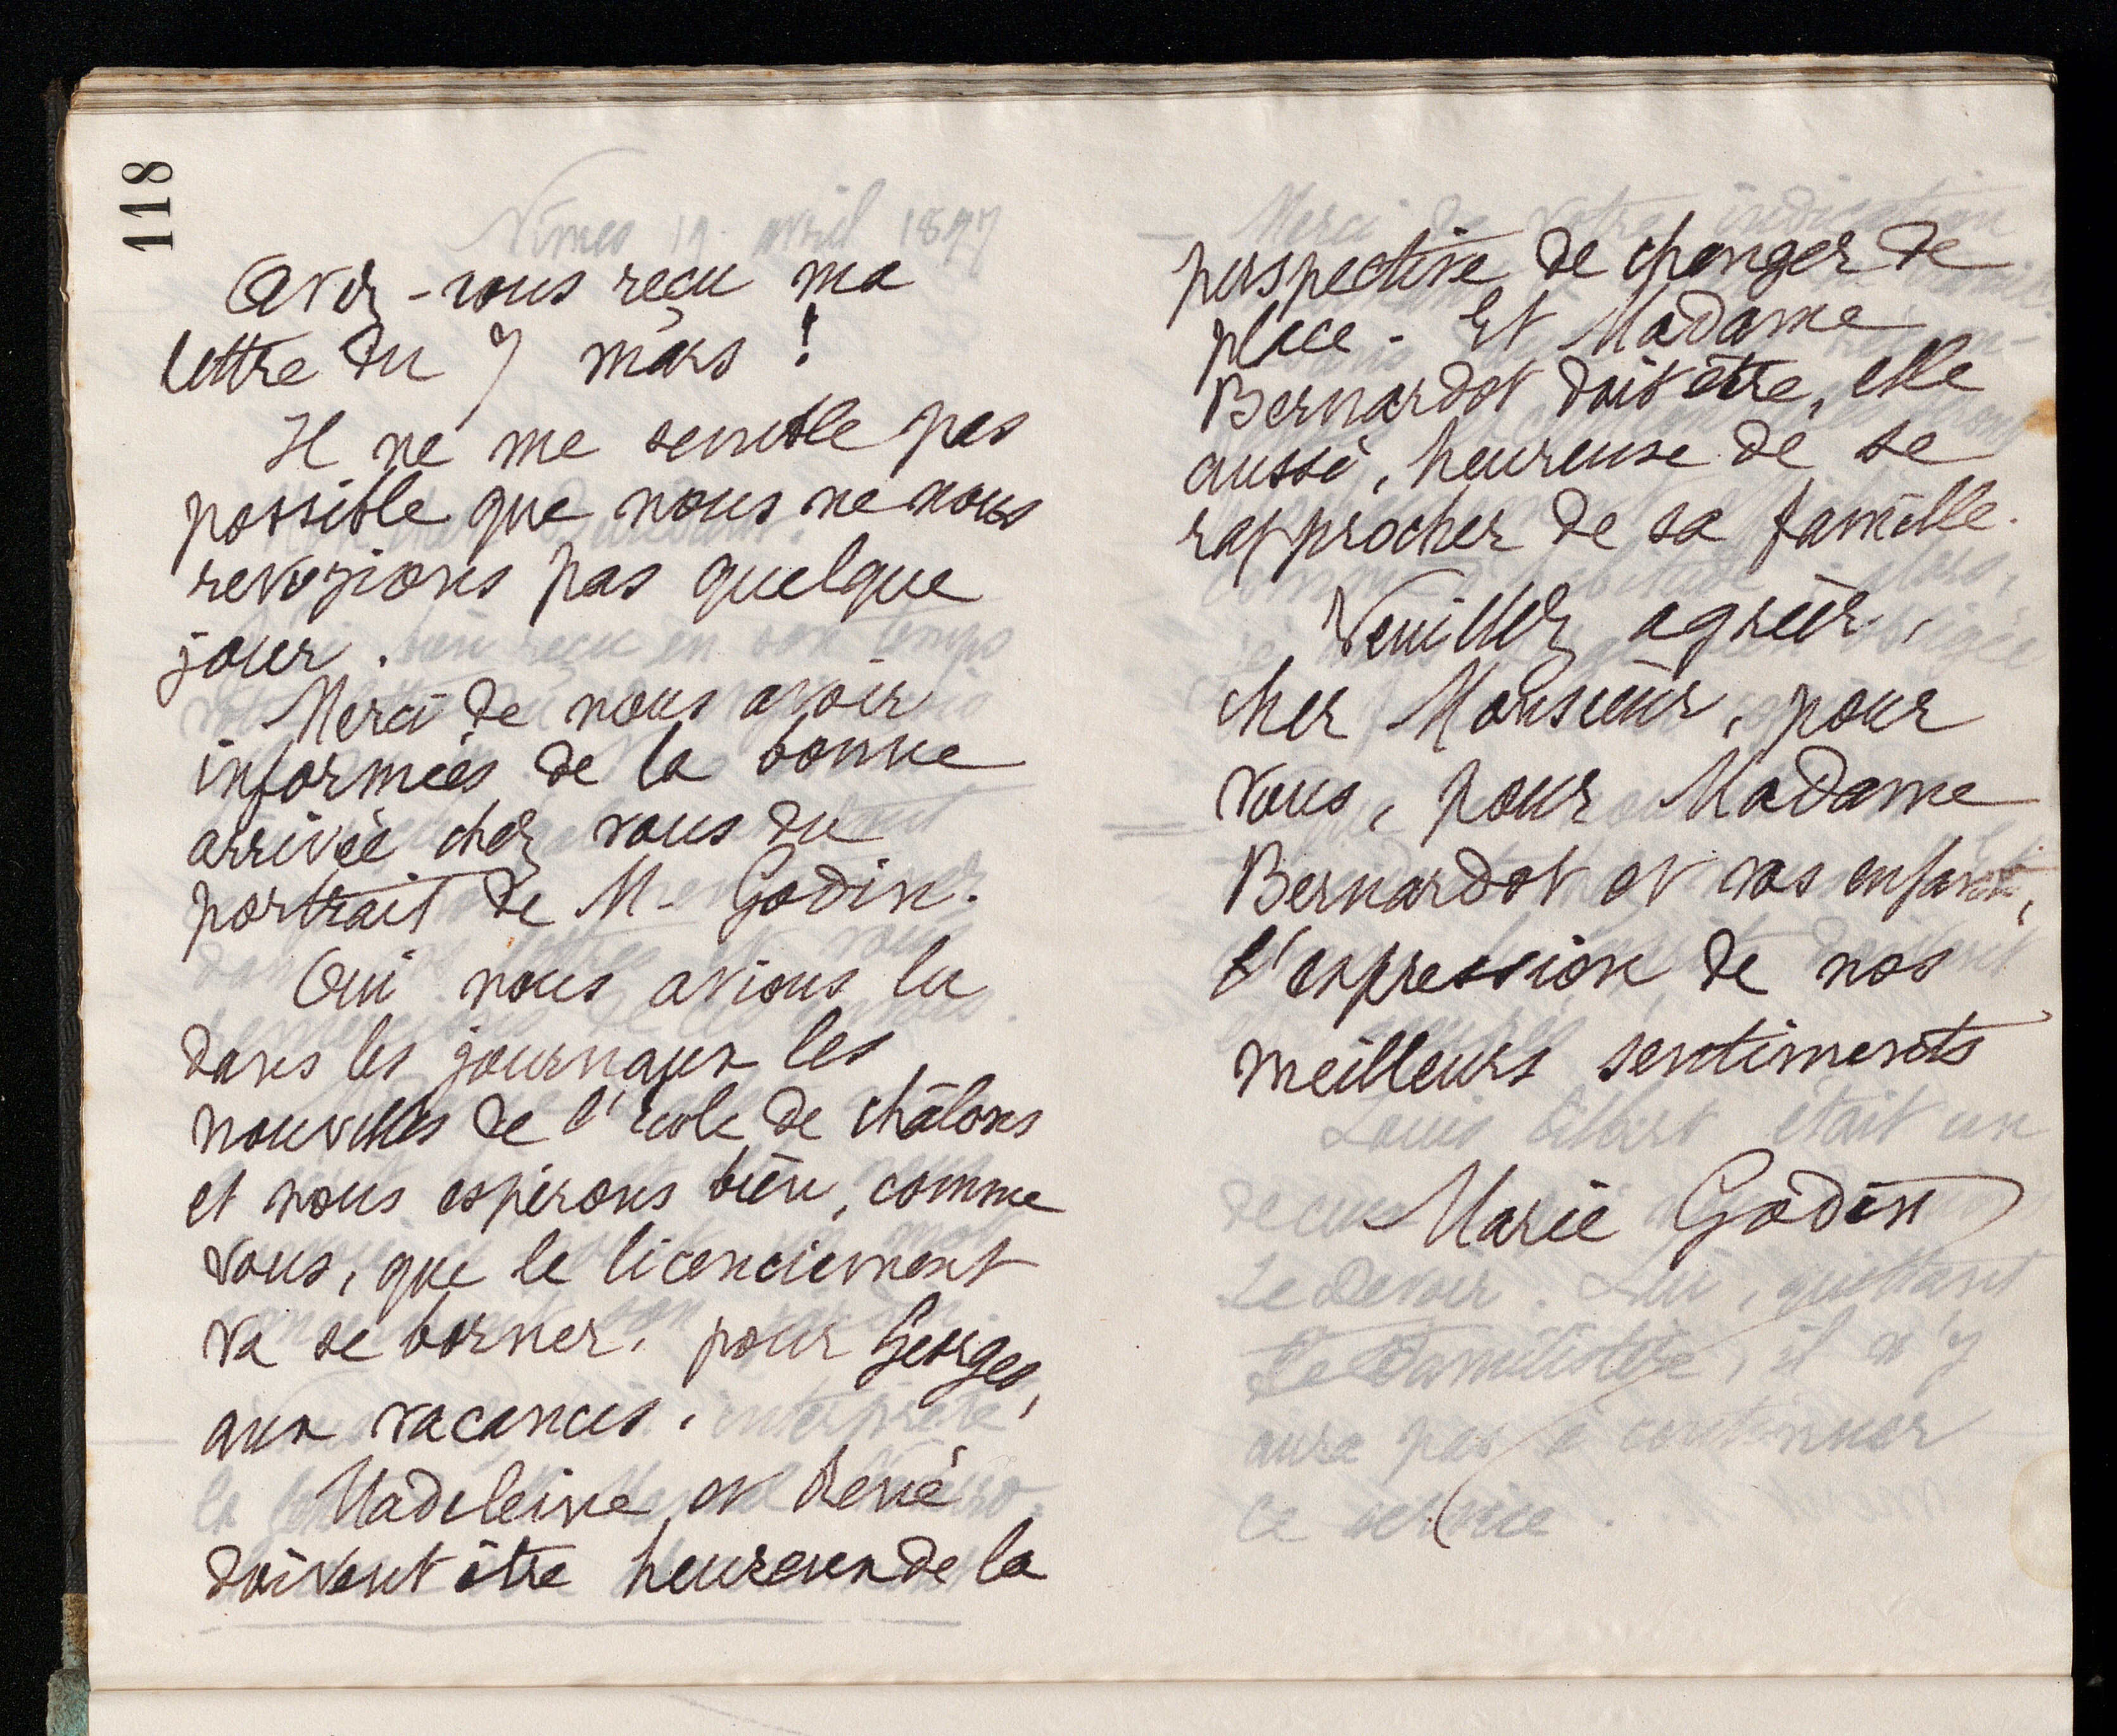 118
Avez-vous reçu ma
lettre du 7 mars ?
Il ne me semble pas
possible que nous ne nous
revoyions pas quelque
jour.
Merci de nous avoir
informées de la bonne
arrivée chez vous du
portrait de M. Godin.
Oui nous avions lu
dans les journaux les
nouvelles de l'école de châlons
et nous espérons bien, comme
vous, que le licenciement
va se borner, pour Georges,
aux vacances.
Madeleine et René
doivent être heureux de la
perspective de changer de
place. Et Madame
Bernardot doit être, elle
aussi, heureuse de se
rapprocher de sa famille.
Veuillez agréer,
cher Monsieur, pour
vous, pour Madame
Bernardot et vos enfants,
l'expression de nos
meilleurs sentiments
Marie Godin